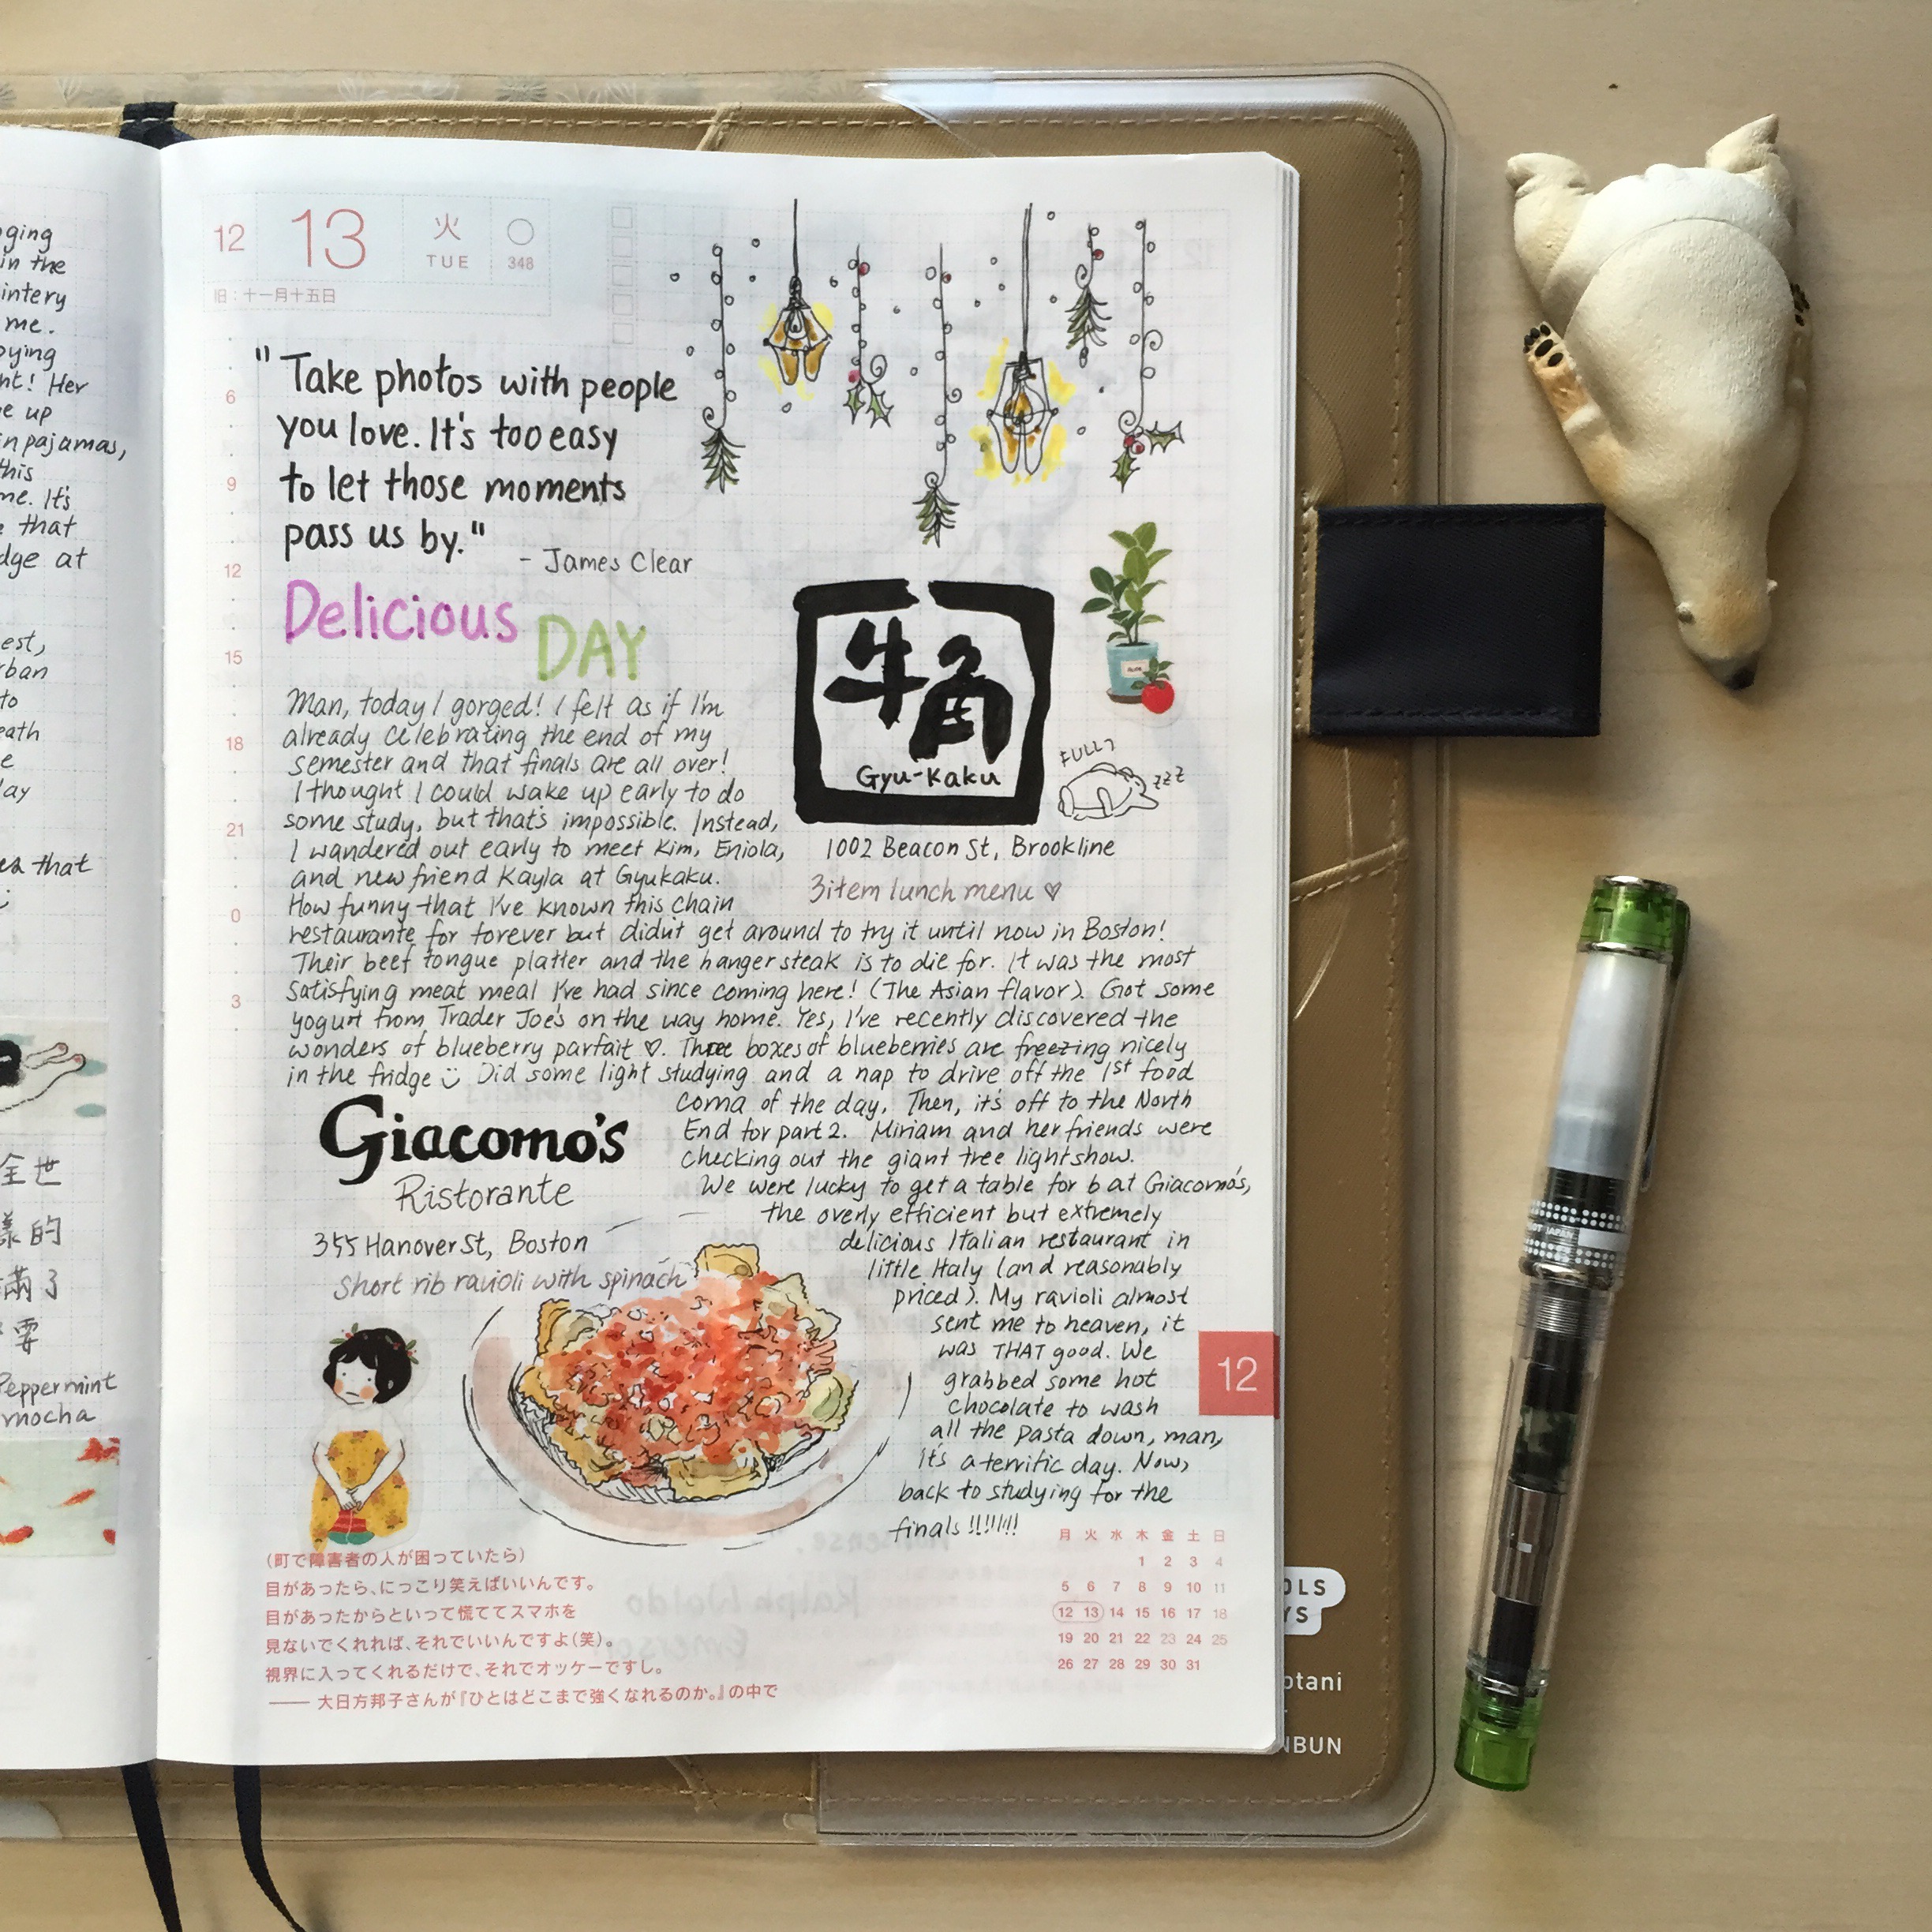 ging
in the
intery
me.
ying
ht! Her
e up
in pajamas,
this
me. It's
e that
dge at
est,
rban
to
eath
e
ay
that
全世
樣的
滿了
要
Peppermint
mocha
12 13 火 TUE 348
旧：十一月十五日
"Take photos with people
you love. It's too easy
to let those moments
pass us by."
- James Clear
Delicious
DAY
6
9
12
15
18
21
0
3
牛角
Gyu-Kaku
FULL?
zzz
1002 Beacon St, Brookline
3 item lunch menu ♡
Man, today I gorged! I felt as if I'm
already celebrating the end of my
semester and that finals are all over!
I thought I could wake up early to do
some study, but that's impossible. Instead,
I wandered out early to meet Kim, Eniola,
and new friend Kayla at Gyukaku.
How funny that I've known this chain
restaurante for forever but didn't get around to try it until now in Boston!
Their beef tongue platter and the hanger steak is to die for. It was the most
satisfying meat meal I've had since coming here! (The Asian flavor). Got some
yogurt from Trader Joe's on the way home. Yes, I've recently discovered the
wonders of blueberry parfait ♡. Three boxes of blueberries are freezing nicely
in the fridge Did some light studying and a nap to drive off the 1st food
coma of the day. Then, it's off to the North
End for part 2. Miriam and her friends were
checking out the giant tree lightshow.
We were lucky to get a table for 6 at Giacomo's,
the overly efficient but extremely
delicious Italian restaurant in
little Italy (and reasonably
priced). My ravioli almost
sent me to heaven, it
was THAT good. We
grabbed some hot
chocolate to wash
all the pasta down, man,
it's a terrific day. Now,
back to studying for the
finals !!!!!!!!
Giacomo's
Ristorante
355 Hanover St, Boston
Short rib ravioli with spinach
12
(町で障害者の人が困っていたら)
目があったら、にっこり笑えばいいんです。
目があったからといって慌ててスマホを
見ないでくれれば、それでいいんですよ(笑)。
視界に入ってくれるだけで、それでオッケーですし。
―― 大日方邦子さんが『ひとはどこまで強くなれるのか。』の中で
月 火 水 木 金 土 日
1 2 3 4
5 6 7 8 9 10 11
12 13 14 15 16 17 18
19 20 21 22 23 24 25
26 27 28 29 30 31
OLS
YS
otani
NBUN
JAPAN